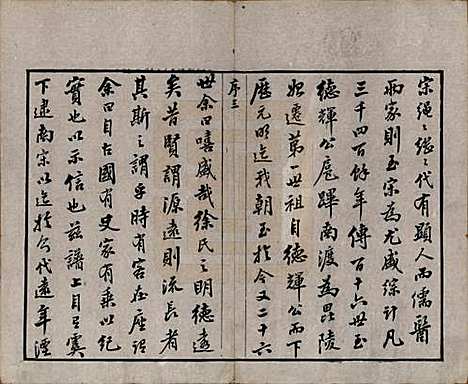 宗繩〻發〻代有顯人而儒醫
兩家則至宗為尤盛綜計凡
三千四百餘年傳百十六世至
德輝公扈蹕南渡為毘陵
始遷第一世祖自德輝公而下
歷元明迄我朝至於今又二十六
序三
世余曰嘻盛哉徐氏之明德遠
矣昔賢謂源遠則流長者
其斯之謂乎時有客在座謂
余曰自古國有史家有乘以紀
實也以示信也茲譜上自有虞
下逮南宋以迄於今代遠年湮